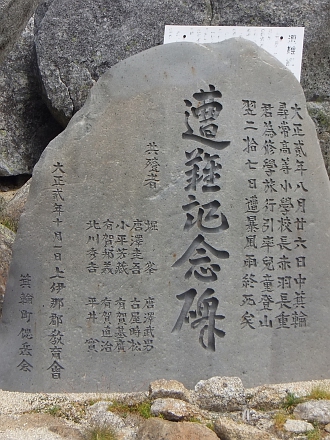 大正貳年八月廿六日中箕輪
尋常高等小學校長赤羽長重
君為修學旅行引率兒童登山
翌二拾七日遭暴風雨終死矣
遭難記念碑
共殪者
堀峯
唐澤武男
唐澤圭吾
古屋時松
小平芳造
有賀基廣
有賀邦美
有賀直治
北川秀吉
平井實
大正貳年十月一日上伊那郡教育會
箕輪町